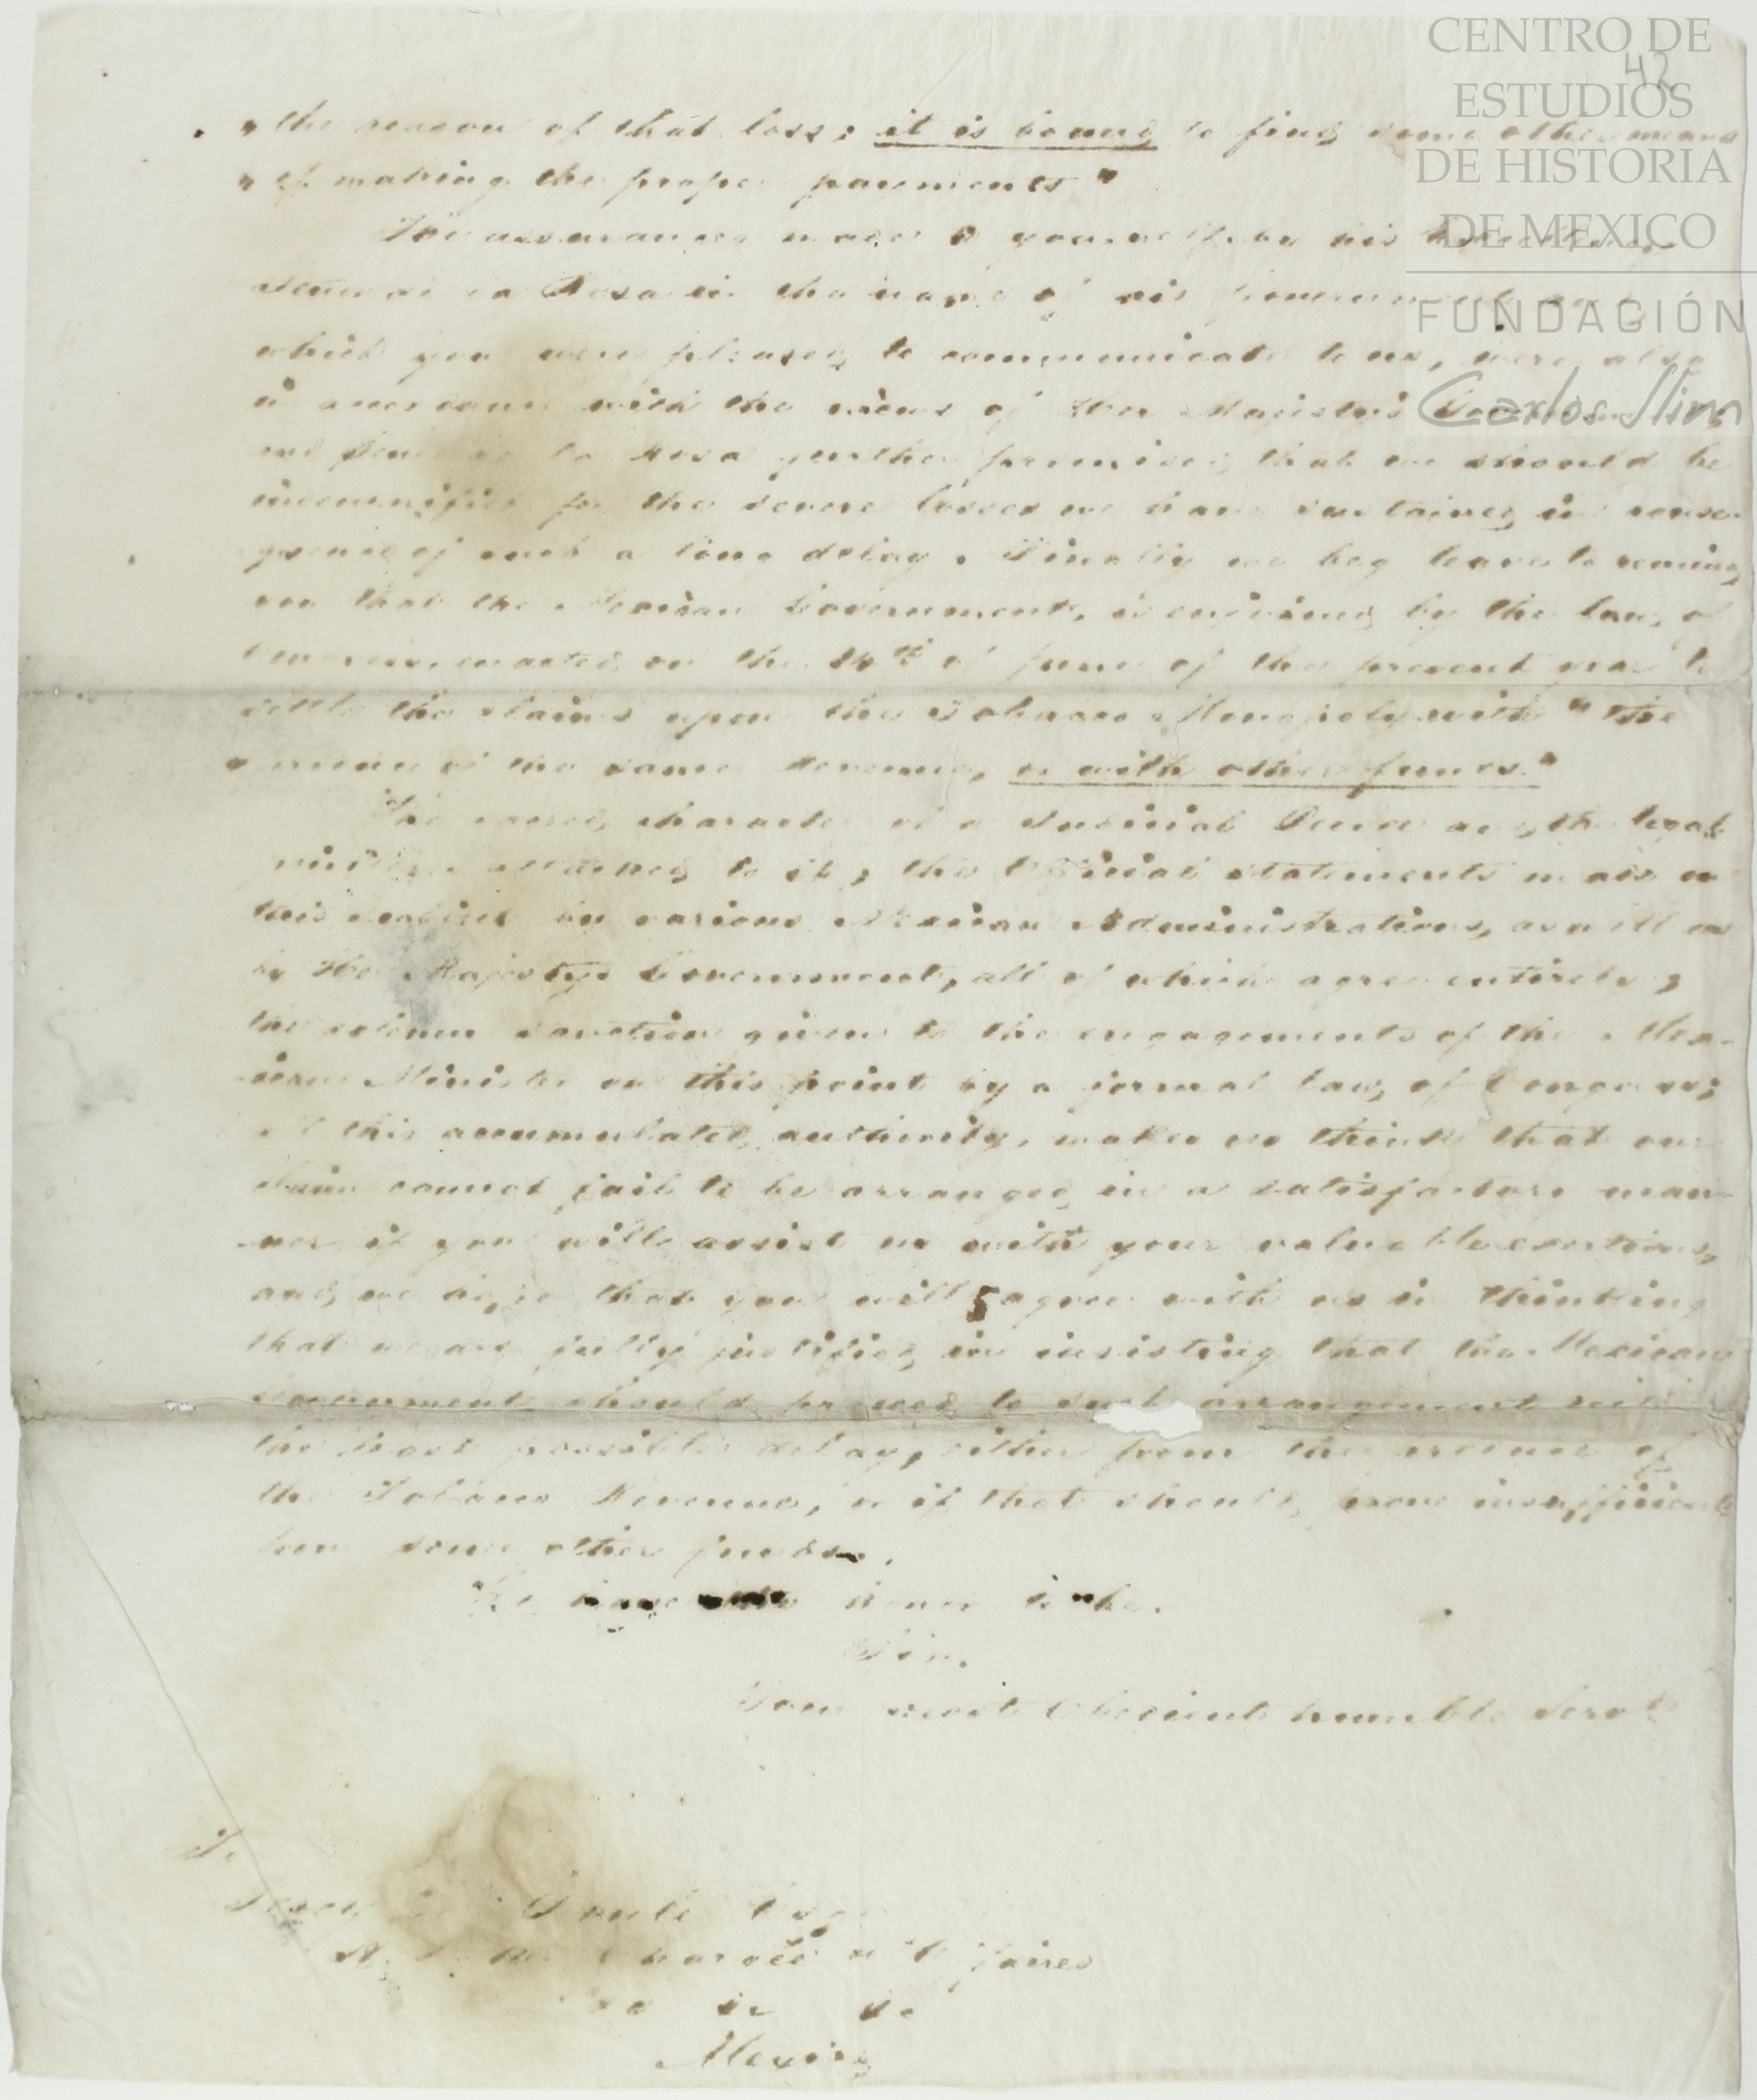 CENTRO DE
ESTUDIOS
DE HISTORIA
DE MEXICO
FUNDACIÓN
Carlos Slim
42
" the reason of that loss; it is bound to find some other means
" of making the proper payments "
The assurances made to yourself by his Excellency
Señor de la Rosa in the name of his Government and
which you were pleased to communicate to us, were also
in accordance with the views of Her Majesty's Government
and Señor de la Rosa further promised that we should be
indemnified for the severe losses we have sustained in conse-
quence of such a long delay. Finally we beg leave to remind
you that the Mexican Government, is enjoined by the law of
Congress enacted on the 14th of June of the present year to
settle the claims upon the Tobacco Monopoly with " the
" of the same Revenue, or with other funds."
The sacred character of a Judicial Deed and the legal
attached to it; the Official statements made on
this subject by various Mexican Administrations, as well as
by Her Majesty's Government, all of which agree entirely;
the solemn sanction given to the engagements of the Mex-
ican Minister on this point by a formal law of Congress;
all this accumulated authority, makes us think that our
claim cannot fail to be arranged in a satisfactory man-
-ner if you will assist us with your valuable exertions,
and we hope that you will agree with us in thinking
that we are fully justified in insisting that the Mexican
Government should proceed to such arrangement with
the least possible delay, either from the income of
the Tobacco Revenue, or if that should prove insufficient
from some other funds.
We have the honor to be.
Sir.
Your most Obedient humble Servts
To
Percy W. Doyle Esqr
H. B. M. Chargé d'Affaires
&a &a &a
Mexico